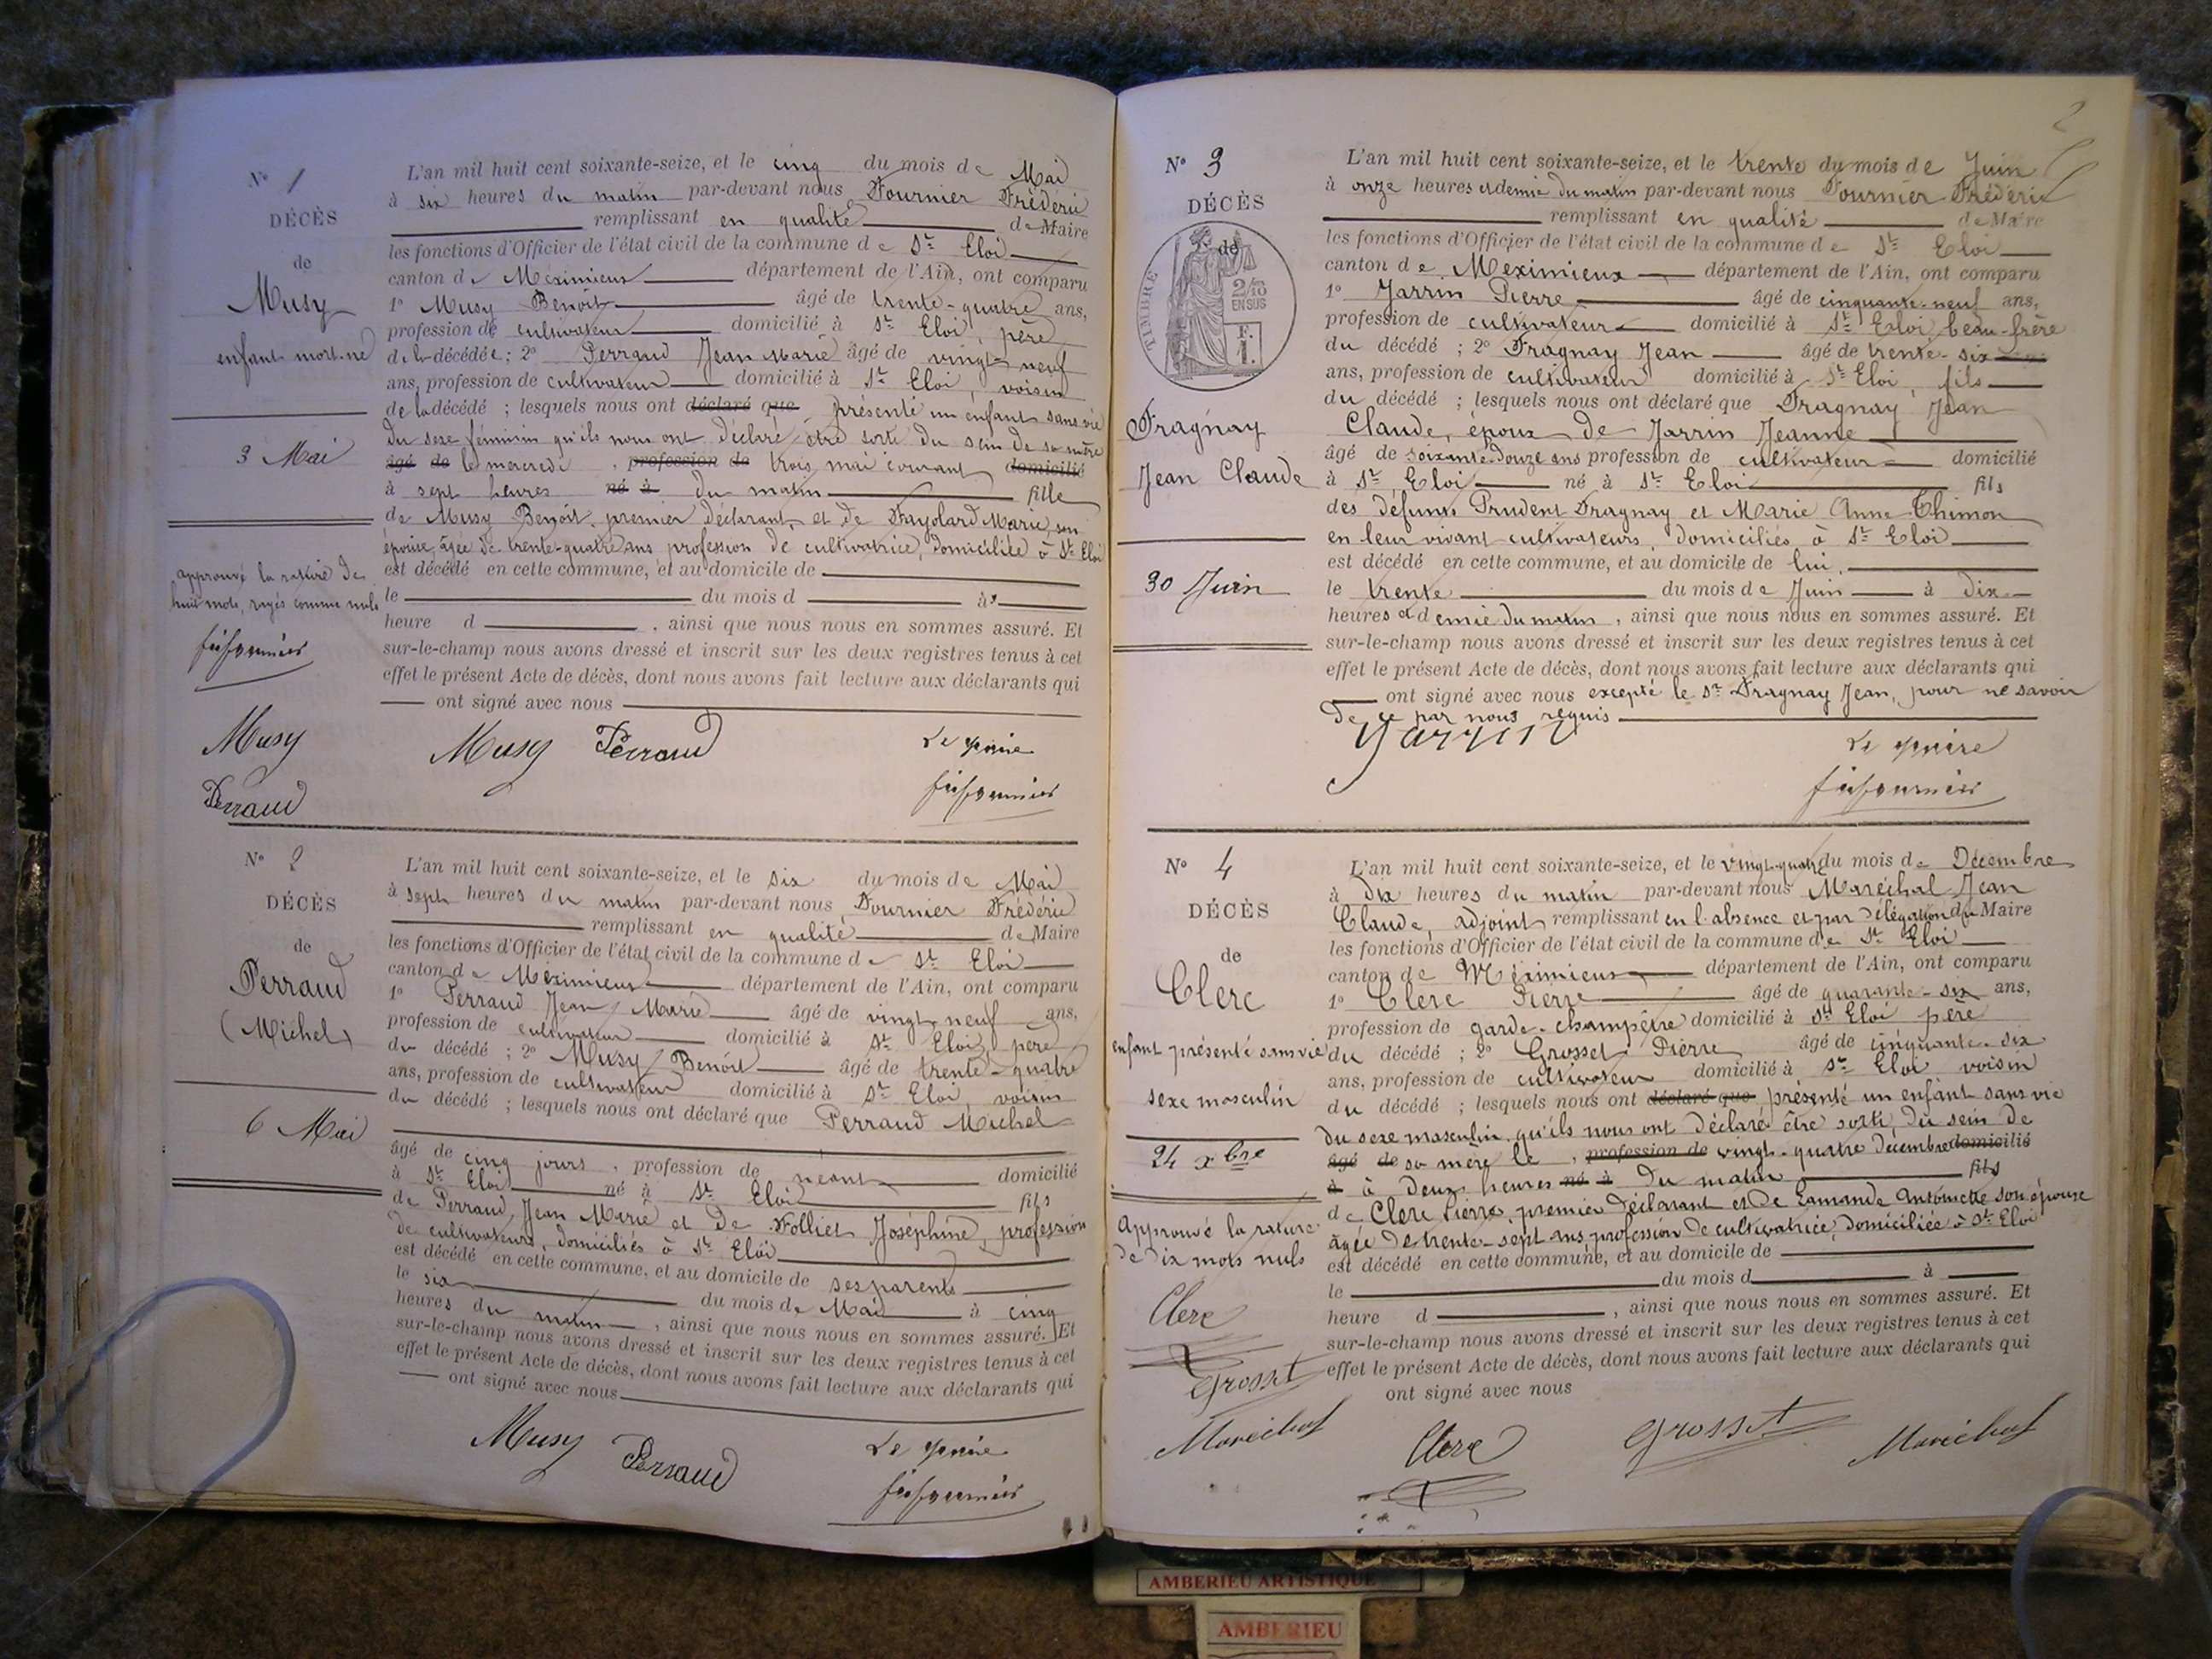 N° 1
DÉCÈS
de
Musy
enfant mort-né
3 Mai
approuvé la rature de
huit mots, rayés comme nuls
Musy
Perraud
L'an mil huit cent soixante-seize, et le cinq du mois de Mai
à six heures du matin par-devant nous Fournier Frédéric
remplissant en qualité de Maire
les fonctions d'Officier de l'état civil de la commune de St Eloi
canton de Méximieux département de l'Ain, ont comparu
1° Musy Benoît âgé de trente-quatre ans,
profession de cultivateur domicilié à St Eloi, père
de la décédée ; 2° Perraud Jean Marie âgé de vingt-neuf
ans, profession de cultivateur domicilié à St Eloi, voisin
de la décédé ; lesquels nous ont déclaré que présenté un enfant sans vie
du sexe féminin qu'ils nous ont déclaré être sorti du sein de sa mère
âgé de le mercredi , profession de trois mai courant domicilié
à sept heures né à du matin fille
de Musy Benoît, premier déclarant, et de Fayolard Marie son
épouse, âgée de trente-quatre ans profession de cultivatrice, domiciliée à St Eloi
est décédé en cette commune, et au domicile de
le du mois d à
heure d , ainsi que nous nous en sommes assuré. Et
sur-le-champ nous avons dressé et inscrit sur les deux registres tenus à cet
effet le présent Acte de décès, dont nous avons fait lecture aux déclarants qui
ont signé avec nous
Musy Perraud Le Maire
N° 2
DÉCÈS
de
Perraud
(Michel)
6 Mai
L'an mil huit cent soixante-seize, et le six du mois de Mai
à sept heures du matin par-devant nous Fournier Frédéric
remplissant en qualité de Maire
les fonctions d'Officier de l'état civil de la commune de St Eloi
canton de Méximieux département de l'Ain, ont comparu
1° Perraud Jean Marie âgé de vingt-neuf ans,
profession de cultivateur domicilié à St Eloi, père
du décédé ; 2° Musy Benoît âgé de trente-quatre
ans, profession de cultivateur domicilié à St Eloi, voisin
du décédé ; lesquels nous ont déclaré que Perraud Michel
âgé de cinq jours , profession de néant domicilié
à St Eloi né à St Eloi fils
de Perraud Jean Marie et de Folliet Joséphine, profession
de cultivateurs, domiciliés à St Eloi
est décédé en cette commune, et au domicile de ses parents
le six du mois de Mai à cinq
heures du matin , ainsi que nous nous en sommes assuré. Et
sur-le-champ nous avons dressé et inscrit sur les deux registres tenus à cet
effet le présent Acte de décès, dont nous avons fait lecture aux déclarants qui
ont signé avec nous
Musy Perraud Le Maire
2
N° 3
DÉCÈS
de
TIMBRE
2/10
EN SUS
F.
1.
Fragnay
Jean Claude
30 Juin
L'an mil huit cent soixante-seize, et le trente du mois de Juin
à onze heures et demie du matin par-devant nous Fournier Frédéric
remplissant en qualité de Maire
les fonctions d'Officier de l'état civil de la commune de St Eloi
canton de Meximieux département de l'Ain, ont comparu
1° Jarrin Pierre âgé de cinquante-neuf ans,
profession de cultivateur domicilié à St Eloi, beau-frère
du décédé ; 2° Fragnay Jean âgé de trente-six
ans, profession de cultivateur domicilié à St Eloi, fils
du décédé ; lesquels nous ont déclaré que Fragnay Jean
Claude, époux de Jarrin Jeanne
âgé de soixante-douze ans profession de cultivateur domicilié
à St Eloi né à St Eloi fils
des défunts Prudent Fragnay et Marie Anne Thimon
en leur vivant cultivateurs, domiciliés à St Eloi
est décédé en cette commune, et au domicile de lui,
le trente du mois de Juin à dix
heures et demie du matin , ainsi que nous nous en sommes assuré. Et
sur-le-champ nous avons dressé et inscrit sur les deux registres tenus à cet
effet le présent Acte de décès, dont nous avons fait lecture aux déclarants qui
ont signé avec nous excepté le Sr Fragnay Jean, pour ne savoir
de ce par nous requis
Jarrin Le Maire
N° 4
DÉCÈS
de
Clerc
enfant présenté sans vie
sexe masculin
24 xbre
Approuvé la rature
de dix mots nuls
Clerc
Grosset
Maréchal
L'an mil huit cent soixante-seize, et le vingt-quatre du mois de Décembre
à dix heures du matin par-devant nous Maréchal Jean
Claude, adjoint remplissant en l'absence et par délégation du Maire
les fonctions d'Officier de l'état civil de la commune de St Eloi
canton de Méximieux département de l'Ain, ont comparu
1° Clerc Pierre âgé de quarante-six ans,
profession de garde-champêtre domicilié à St Eloi père
du décédé ; 2° Grosset Pierre âgé de cinquante-six
ans, profession de cultivateur domicilié à St Eloi voisin
du décédé ; lesquels nous ont déclaré que présenté un enfant sans vie
du sexe masculin qu'ils nous ont déclaré être sorti du sein de
âgé de sa mère le , profession de vingt-quatre décembre domicilié
à à deux heures né à du matin fils
de Clerc Pierre, premier déclarant et de Lamande Antoinette son épouse
âgée de trente-sept ans profession de cultivatrice, domiciliée à St Eloi
est décédé en cette commune, et au domicile de
le du mois d à
heure d , ainsi que nous nous en sommes assuré. Et
sur-le-champ nous avons dressé et inscrit sur les deux registres tenus à cet
effet le présent Acte de décès, dont nous avons fait lecture aux déclarants qui
ont signé avec nous
Clerc Grosset Maréchal
AMBERIEU ARTISTIQUE
AMBERIEU